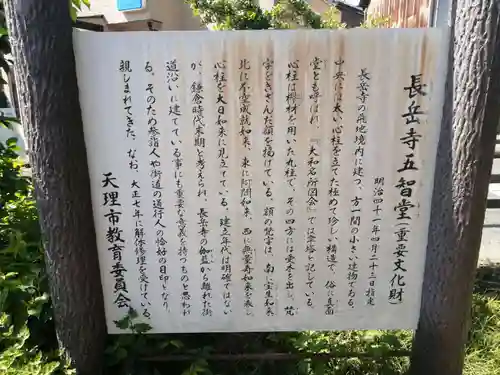 長岳寺五智堂(重要文化財)
明治四十一年四月二十三日指定
長岳寺の飛地境内に建つ、方一間の小さい建物である。
中央には太い心柱を立てた極めて珍しい構造で、俗に真面
堂とも呼ばれ、『大和名所図会』では傘塔と記している。
心柱は欅材を用いた丸柱で、その四方には受木を出し、梵
字をきざんだ額を掲げている。額の梵字は、南に宝生如来
北に不空成就如来、東に阿閦如来、西に無量寿如来を表し、
心柱を大日如来に見立てている。建立年代は明確ではない
が、鎌倉時代末期と考えられ、長岳寺の伽藍から離れた街
道沿いに建てている事にも重要な意義を持つものと思われ
る。そのため参詣人や街道の通行人の恰好の目印となり、
親しまれてきた。なお、大正七年に解体修理を受けている。
天理市教育委員会